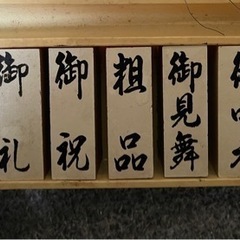 御礼
御祝
粗品
御見舞